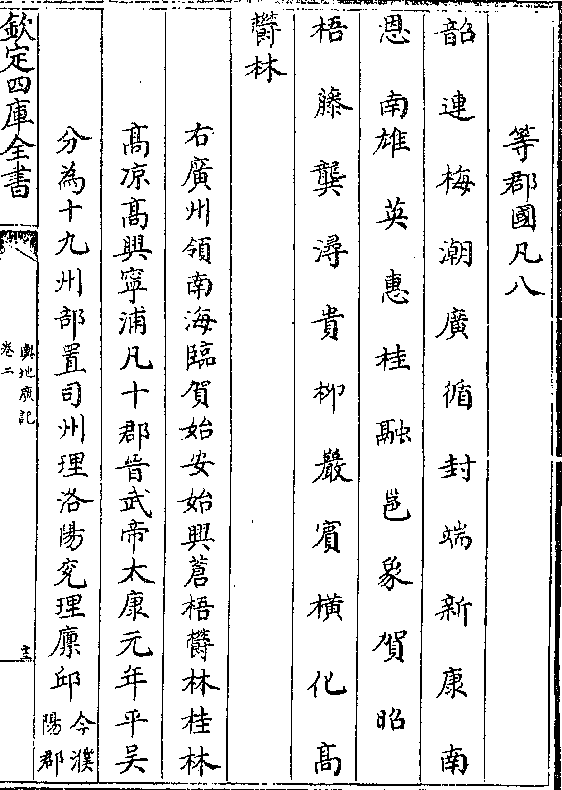 等郡國凡八
韶連梅潮廣循封端新康南
恩南雄英惠桂融邕象賀昭
梧藤龔潯貴柳嚴賓橫化高
欝林
右廣州領南海臨賀始安始興蒼梧欝林桂林
高凉高興寧浦凡十郡晋武帝太康元年平吴
分為十九州部置司州理洛陽兖理廪邱今濮
陽郡
欽定四庫全書
輿地廣記
卷二